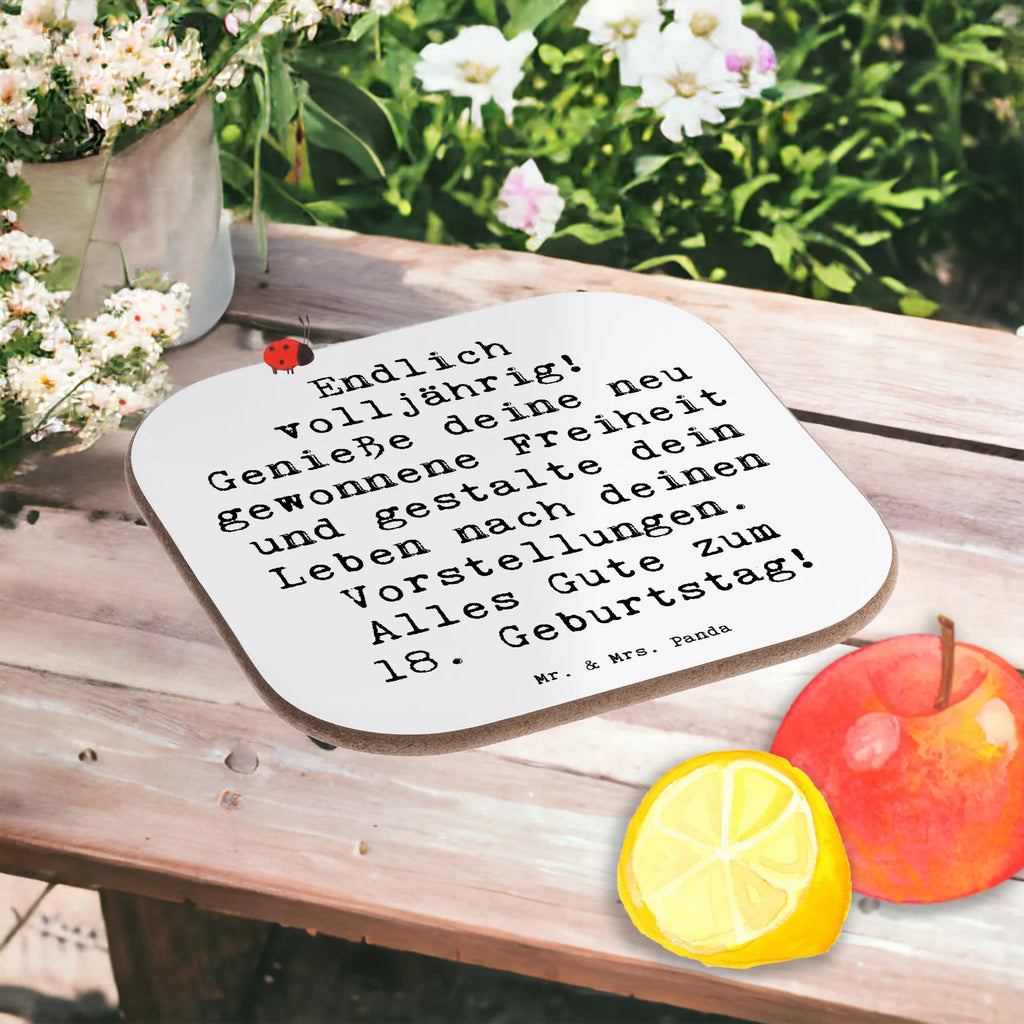 Endlich
volljährig!
Genieße deine neu
gewonnene Freiheit
und gestalte dein
Leben nach deinen
Vorstellungen.
Alles Gute zum
18. Geburtstag!
Mr. & Mrs. Panda